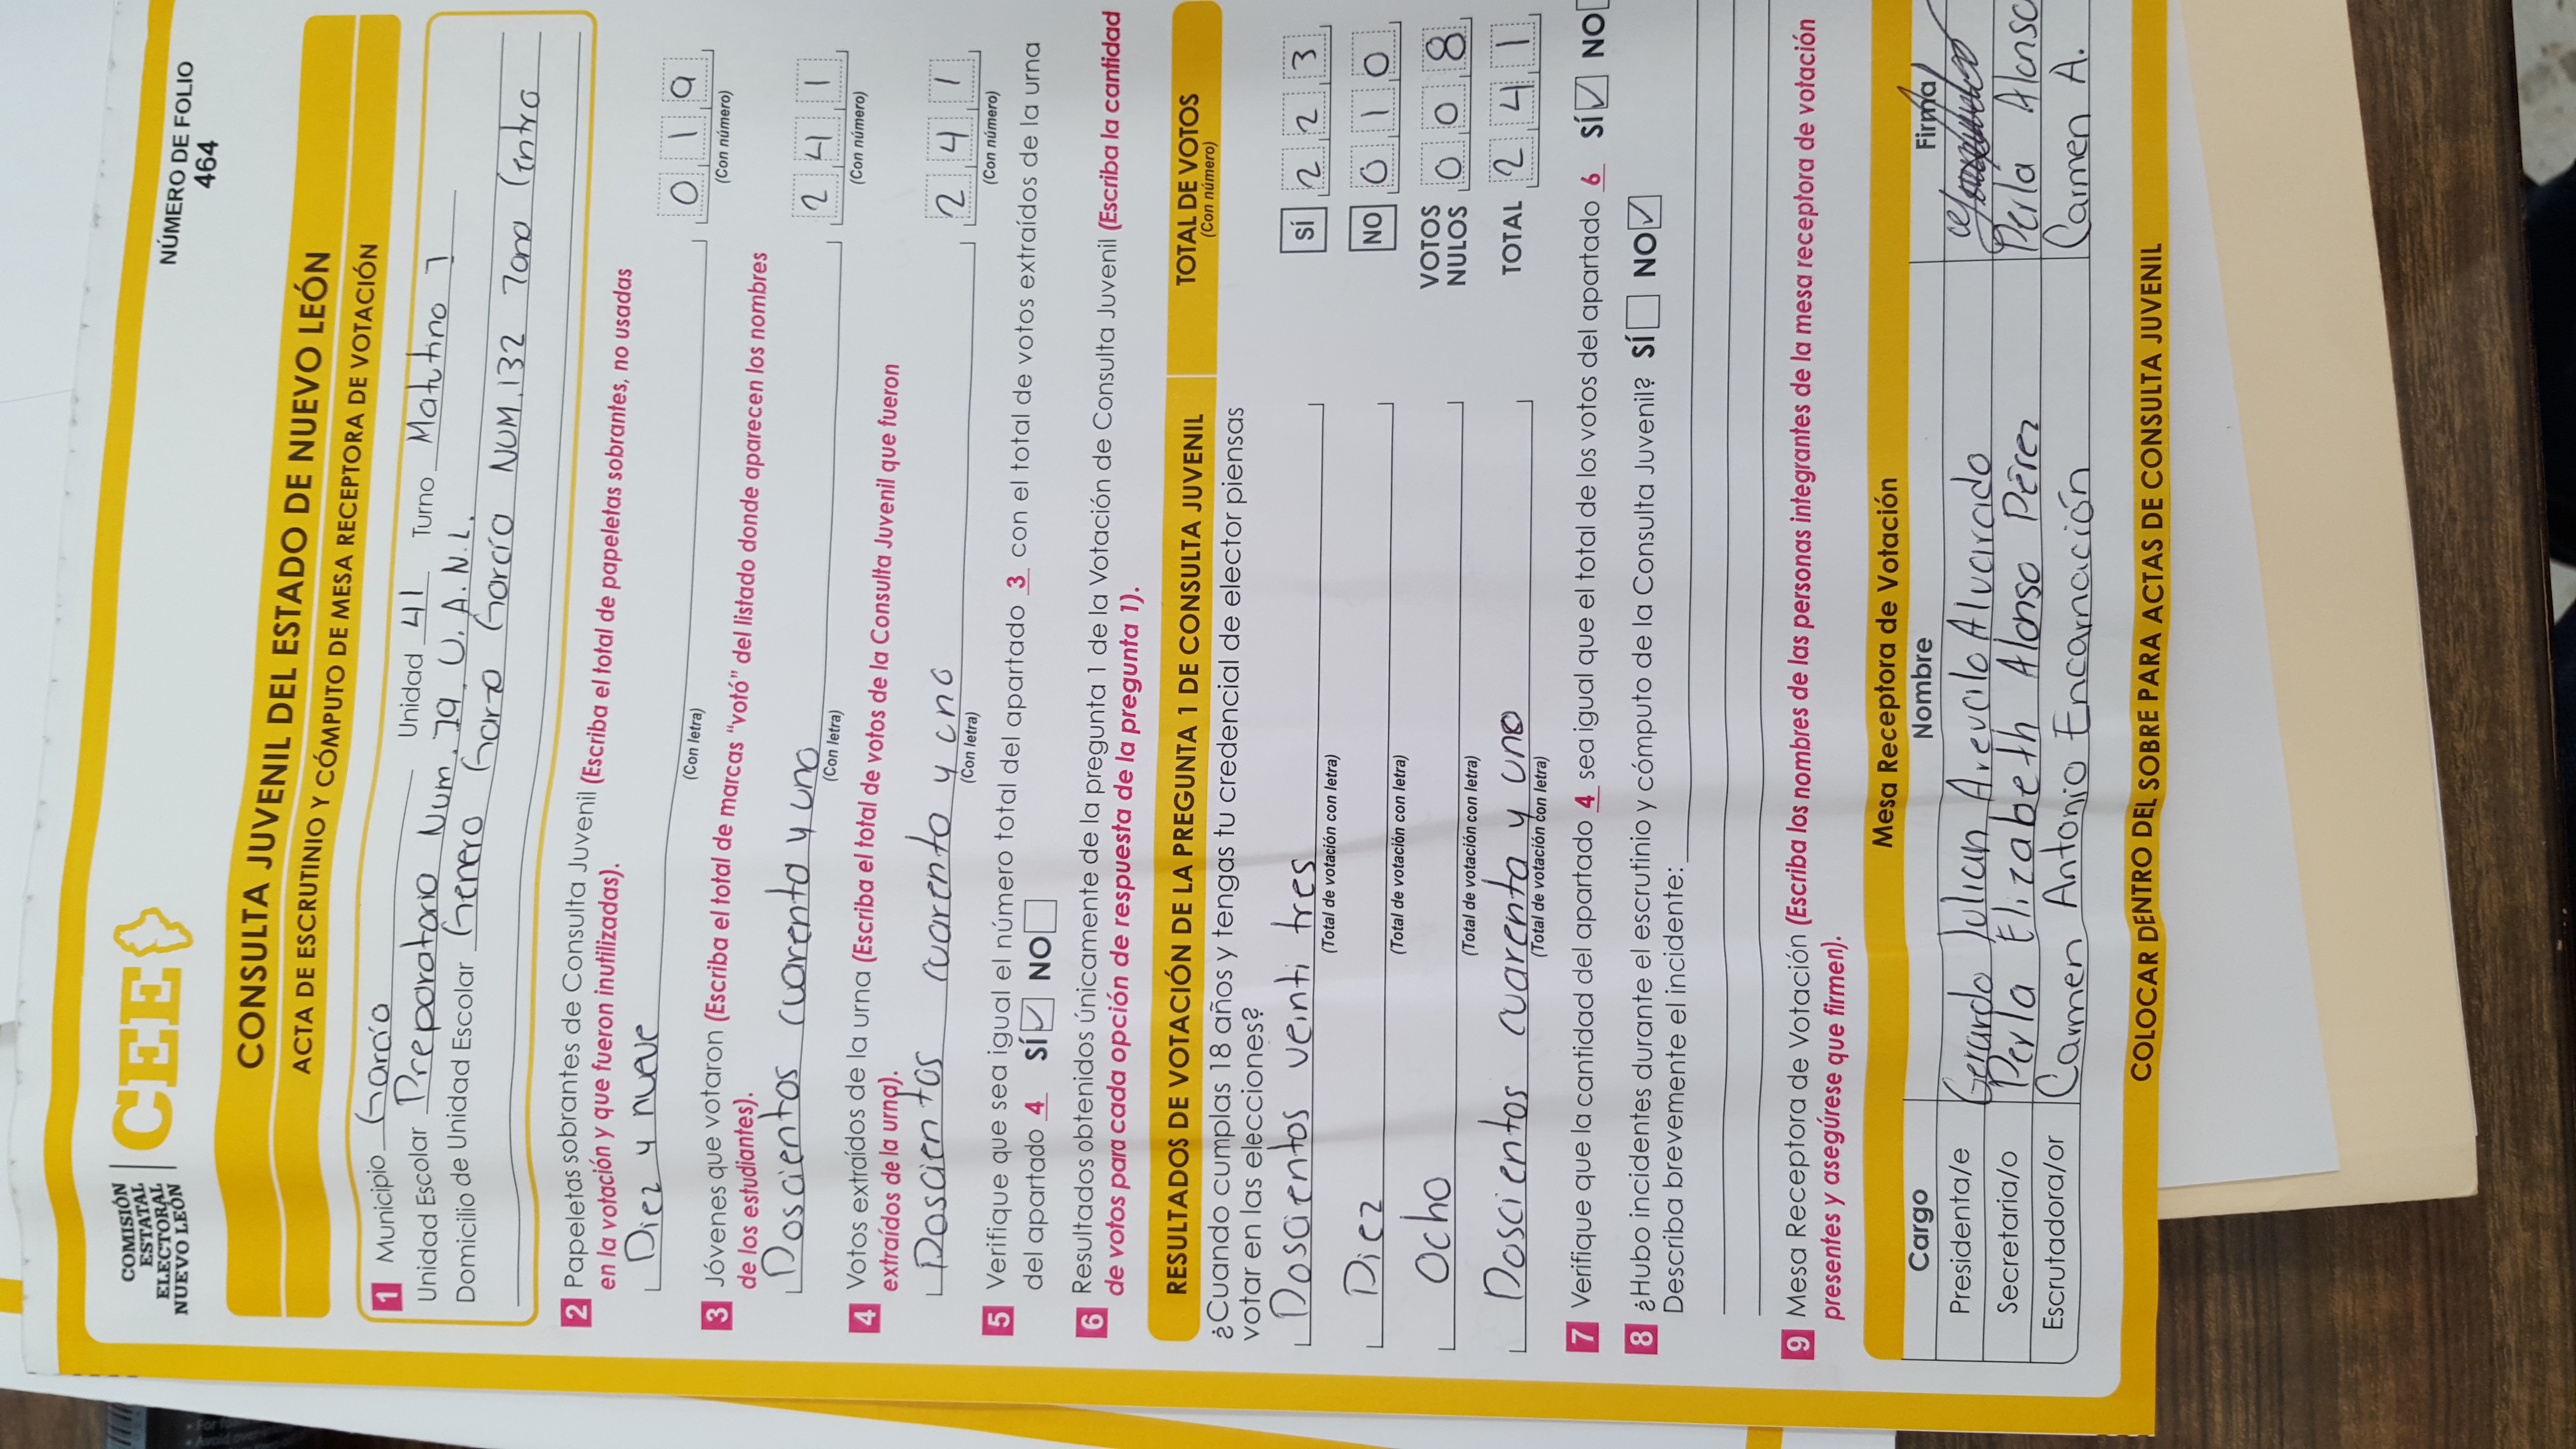 COMISIÓN
ESTATAL
ELECTORAL
NUEVO LEÓN
CEE
NÚMERO DE FOLIO
464
CONSULTA JUVENIL DEL ESTADO DE NUEVO LEÓN
ACTA DE ESCRUTINIO Y CÓMPUTO DE MESA RECEPTORA DE VOTACIÓN
1 Municipio García
Unidad Escolar Preparatoria Num. 79 U.A.N.L. Unidad 41 Turno Matutino 1
Domicilio de Unidad Escolar Genero Garza García NUM.132 Zona Centro
2 Papeletas sobrantes de Consulta Juvenil (Escriba el total de papeletas sobrantes, no usadas
en la votación y que fueron inutilizadas).
Diez y nueve 0 1 9
(Con letra) (Con número)
3 Jóvenes que votaron (Escriba el total de marcas “votó” del listado donde aparecen los nombres
de los estudiantes).
Doscientos cuarenta y uno 2 4 1
(Con letra) (Con número)
4 Votos extraídos de la urna (Escriba el total de votos de la Consulta Juvenil que fueron
extraídos de la urna).
Doscientos cuarenta y uno 2 4 1
(Con letra) (Con número)
5 Verifique que sea igual el número total del apartado 3 con el total de votos extraídos de la urna
del apartado 4 SÍ ✓ NO
6 Resultados obtenidos únicamente de la pregunta 1 de la Votación de Consulta Juvenil (Escriba la cantidad
de votos para cada opción de respuesta de la pregunta 1).
RESULTADOS DE VOTACIÓN DE LA PREGUNTA 1 DE CONSULTA JUVENIL TOTAL DE VOTOS
(Con número)
¿Cuando cumplas 18 años y tengas tu credencial de elector piensas
votar en las elecciones?
Doscientos veinti tres SÍ 2 2 3
(Total de votación con letra)
Diez NO 0 1 0
(Total de votación con letra)
Ocho VOTOS NULOS 0 0 8
(Total de votación con letra)
Doscientos cuarenta y uno TOTAL 2 4 1
(Total de votación con letra)
7 Verifique que la cantidad del apartado 4 sea igual que el total de los votos del apartado 6 SÍ ✓ NO
8 ¿Hubo incidentes durante el escrutinio y cómputo de la Consulta Juvenil? SÍ NO ✓
Describa brevemente el incidente:
9 Mesa Receptora de Votación (Escriba los nombres de las personas integrantes de la mesa receptora de votación
presentes y asegúrese que firmen).
Mesa Receptora de Votación
Cargo Nombre Firma
Presidenta/e Gerardo Julian Arevalo Alvarado
Secretaria/o Perla Elizabeth Alonso Pérez Perla Alonso
Escrutadora/or Carmen Antonio Encarnación Carmen A.
COLOCAR DENTRO DEL SOBRE PARA ACTAS DE CONSULTA JUVENIL